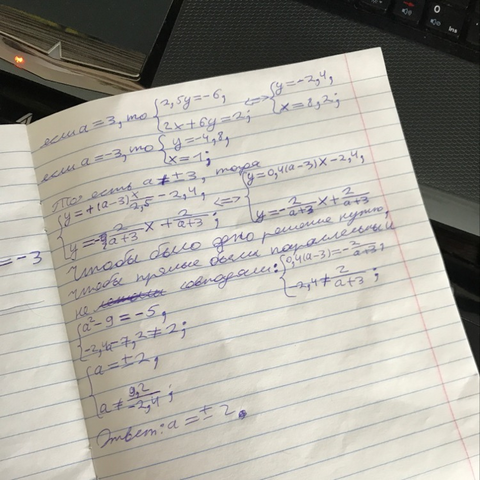 если a=3, то { 2,5y=-6, 2x+6y=2; <=> { y=-2,4, x=8,2;
если a=-3, то { y=-4,8, x=-1;
То есть a≠±3, тогда
{ y=+(a-3)x/2,5-2,4, y=-2/(a+3)x+2/(a+3); <=> { y=0,4(a-3)x-2,4, y=-2/(a+3)x+2/(a+3)
Чтобы было одно решение нужно,
чтобы прямые были параллельны и
не совпадали: { 0,4(a-3)=-2/(a+3); -2,4≠2/(a+3);
{ a²-9=-5, -2,4a-7,2≠2;
{ a=±2, a≠9,2/-2,4;
Ответ: a=±2.
=-3
Ins